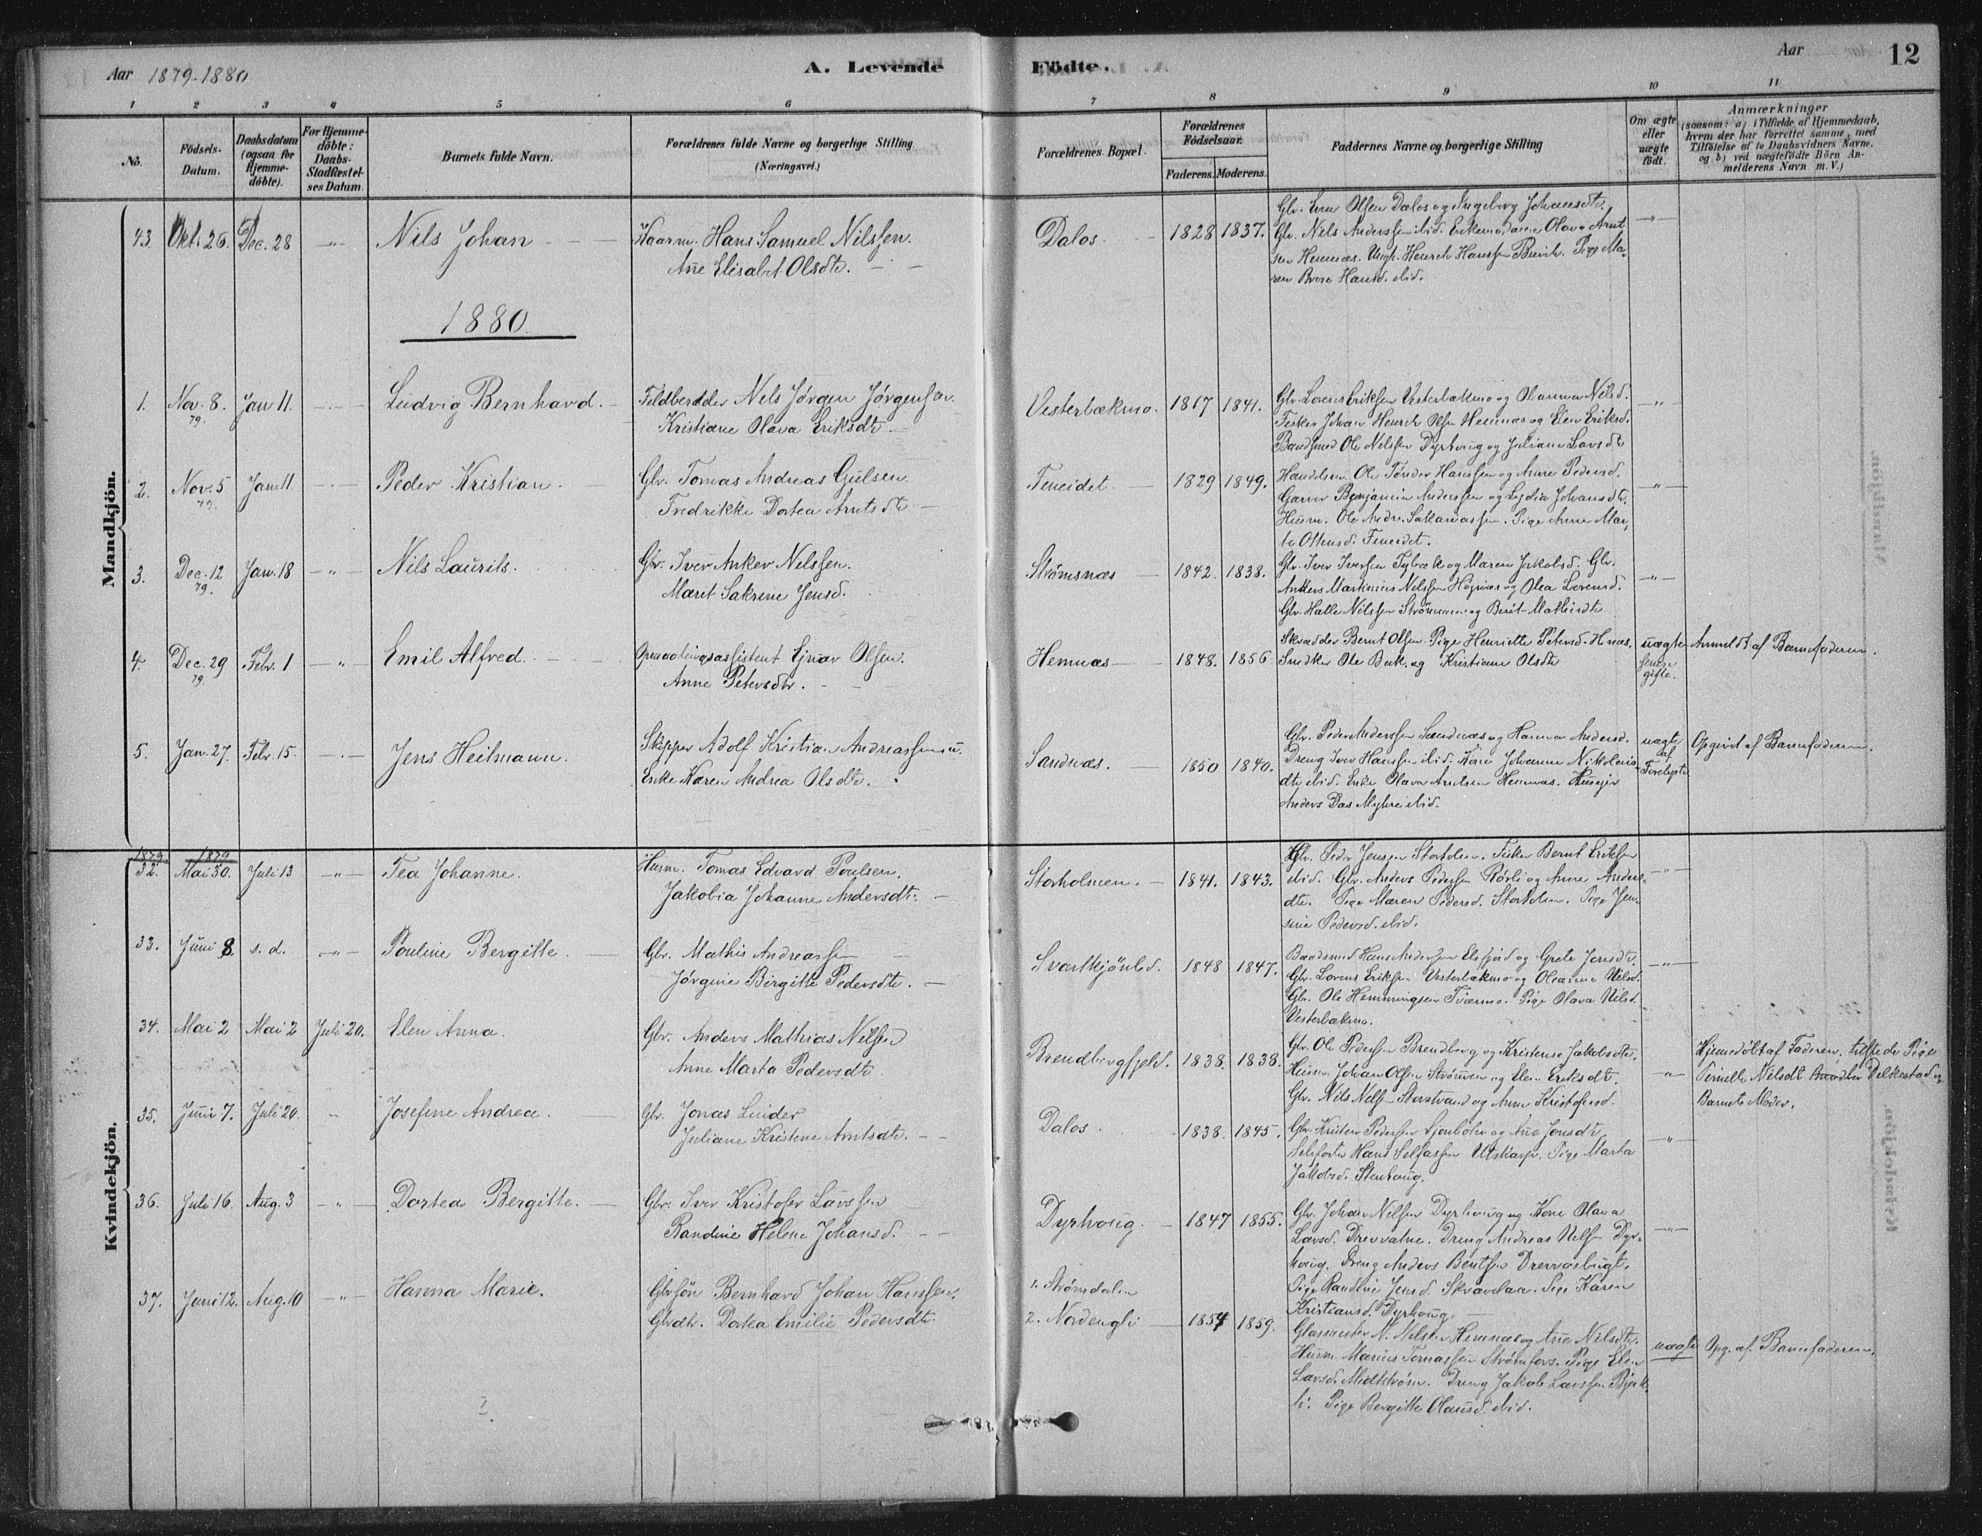 Aar 1879-1880
A. Levende Födte.
Aar
12
1 2 3 4 5 6 7 8 9 10 11
No.
Födsels-Datum.
Daabsdatum (ogsaa for Hjemmedöbte).
For Hjemmedöbte: Daabs-Stadfæstelses Datum.
Barnets fulde Navn.
Forældrenes fulde Navne og borgerlige Stilling
(Næringsvei.)
Forældrenes Bopæl.
Forældrenes Födselsaar.
Faderens. Moderens.
Faddernes Navne og borgerlige Stilling
Om ægte eller uægte födt.
Anmærkninger
(saasom: a) i Tilfælde af Hjemmedaab, hvem der har forrettet samme, med Tilföielse af to Daabsvidners Navne. og b) ved uægtefödte Börn Anmelderens Navn m. V.)
Mandkjön.
43. Okt. 26. Dec. 28 -"- Nils Johan
Hans Samuel Nilssen.
Ane Elisabet Olsdtr.
Dalos. 1828 1837.
Olsen Dalos og Ingeborg Johansdtr.
Glr. Nils Anderssen ibid. Enkemadame Olava Arnt
sen Hemnæs. Ungk. Henrik Hanssen Pige Ma-
ren Hansd. ibid.
-"-
1880
1. Nov. 8. 79. Jan 11. Ludvig Bernhard.
Nils Jørgen Jørgensen.
Kristiane Olava Eriksdtr
Vesterbækmo. 1817 1841.
Glr. Lorens Eriksen Vesterbækmo og Olianna Nilsd.
Fisker Johan Henrik Olsen Hemnæs og Elen Eriksd.
Baadsmd Ole Nilssen Dyrhoug og Juliane Larsdtr
-"-
2. Nov. 5 79. Jan. 11 Peder Kristian.
Glr. Tomas Andreas Gulsen.
Fredrikke Dortea Arntsdtr
Fineidet. 1829 1849.
Handelsm. Ole Tønder Hanssen og Anne Pedersd.
Garver Benjamin Anderssen og Lydia Johansdtr.
Husm. Ole Andr. Sakariassen. Pige Anne Mar-
ta Fineidet.
-"-
3. Dec. 12 79. Jan. 18 -"- Nils Laurits.
Glr. Iver Anker Nilssen.
Maret Sakrine Jensd.
Strømsnæs 1842. 1838.
Glr. Iver Iverssen Tybæk og Maren Jakobsd. Glr.
Ankers Martinius Nilssen Høgnæs og Olea Lorensd.
Glr. Halle Nilssen og Berit Mathisdtr
-"-
4. Dec. 29 79. Febr. 1 -"- Emil Alfred.
Opmaalingsassistent Ejnar Olsen.
Anne Petersdtr.
Hemnæs 1848. 1856
Skrædder Bernt Olsen. Pige Henriette Petersd. Hnæs.
Snedker Ole Bak. og Kristianne Olsdtr
uægte gifte.
Anmeldt af Barnefaderen.
5. Jan. 27. Febr. 15. Jens Heilmann.
Skipper Adolf Kristian Andreassen u.
Enke Karen Andrea Olsdtr.
Sandnæs. 1850 1840.
Glr. Peder Anderssen Sandnæs og Hanna Andersd.
Dreng Iver Hanssen ibid. Kone Johanna Nikolais-
dtr ibid. Enke Olava Arntsen Hemnæs. Huseier
Anders Das Myhre ibid.
uægte af Forelsgte
Opgivet af Barnefaderen.
Kvindekjön.
1879.
32. 1879 Mai 30. Juli 13 -"- Tea Johanne.
Husm. Tomas Edvard Poulsen.
Jakobia Johanne Andersdtr.
Storholmen. 1841. 1843.
Glr. Peder Jenssen Fisker Bernt Eriksen
ibid. Glr. Anders Pedersen Rørli og Anne Anders-
dtr. Pige Maren Pedersd. Pige Jen-
sine Pedersd. ibid.
-"-
33. Juni 8. s. d. -"- Pouline Bergitte.
Glr. Mathis Andreassen
Jørgine Birgitte Pedersdtr.
1848 1847.
Baadsmd Hans Anderssen Elsfjord og Grete Jensdtr.
Glr. Lorens Eriksen Vesterbækmo og Oleanna Nilsd.
Glr. Ole Hemmingsen Tværmo. Pige Olava Nilsd.
Vesterbækmo.
-"-
34. Mai 2 Mai 2 Juli 20. Elen Anna.
Glr. Anders Mathias Nilssen
Anne Marta Pedersdtr.
Brendbergfjeld. 1838. 1838.
Glr. Ole Pedersen Brendberg og Kristense Jakobsdtr.
Husm. Johan Olsen Strømmen og Elen Eriksdtr.
Glr. Nils Nilss. Storstrand og Anne Kristofersd.
-"-
Hjemmedøbt af Faderen. tilstede Pige
Pernille Nilsdt og
Barnets Moder.
35. Juni 7. Juli 20. " Josefine Andrea.
Glr. Jonas Linder
Juliane Kristine Arntsdtr.
Dalos. 1838. 1845.
Glr. Kristen Pedersen og Ane Jonsdtr.
Hans Selfassen Utskarp. Pige Marta
Jakobsd. Stenhoug.
-"-
36. Juli 16. Aug. 3 -"- Dortea Bergitte.
Glr. Iver Kristofer Larssen
Randine Helene Johansd.
Dyrhoug. 1847 1855.
Glr. Johan Nilssen Dyrhoug og Kone Olava
Larsd. Drevvatne. Dreng Andreas Nilss. Dyr-
houg. Dreng Anders Bentsen
Pige Randine Jensd. Skravlaa. Pige Karen
Kristiansd. Dyrhoug.
-"-
37. Juni 12. Aug. 10 -"- Hanna Marie.
Glrsøn Bernhard Johan Hanssen.
Glrdtr. Dortea Emilie Pedersdtr.
1. Strømdalen
2. Nordengli 1854 1859.
Glasmester N. Nilsen Hemnæs og Ane Nilsdtr.
Husm. Marius Tomassen Strømfors. Pige Elen
Larsd. Midtstrøm. Dreng Jakob Larssen Bjerk-
li. Pige Bergitte Olausd. ibid.
uægte
Opg. af Barnefaderen.